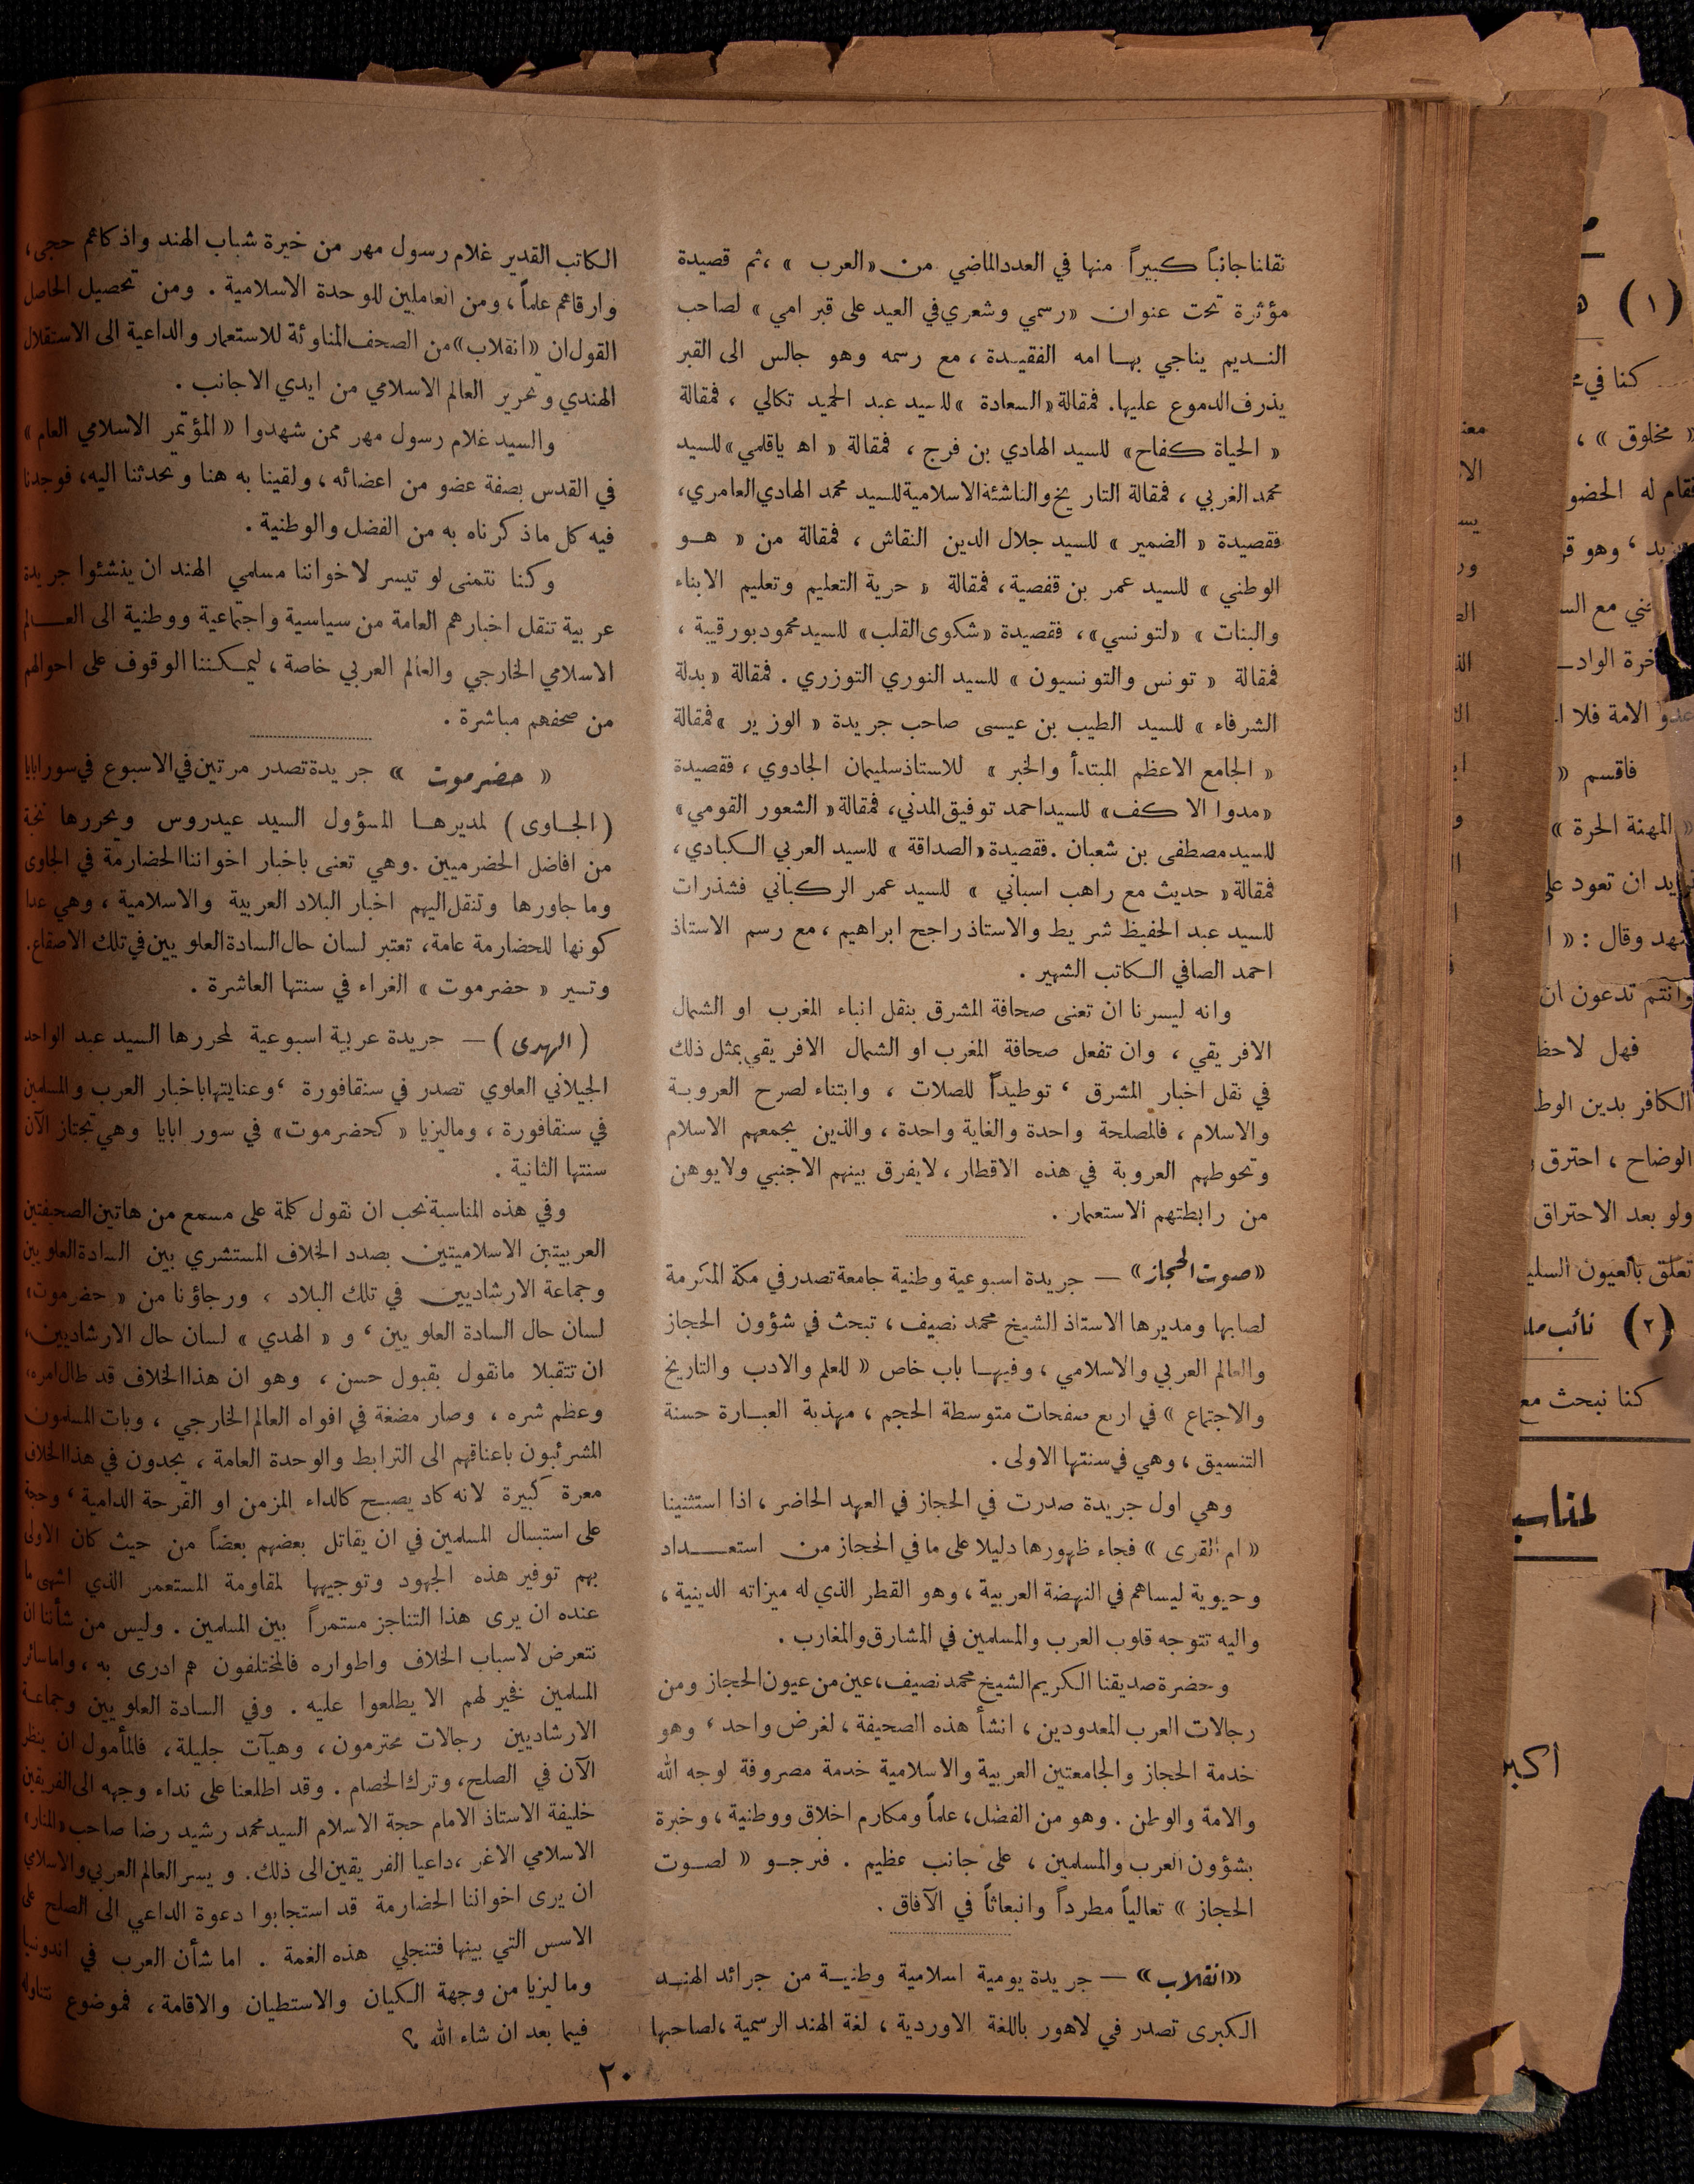 نقلنا جانباً كبيراً منها في العدد الماضي من «العرب» ، ثم قصيدة
مؤثرة تحت عنوان «رسمي وشعري في العيد على قبر امي» لصاحب
النديم يناجي بها امه الفقيدة ، مع رسمه وهو جالس الى القبر
يذرف الدموع عليها. فمقالة «السعادة» للسيد عبد الحميد تكالي ، فمقالة
« الحياة كفاح» للسيد الهادي بن فرج ، فمقالة « اه ياقلمي» للسيد
محمد الغربي ، فمقالة التاريخ والناشئة الاسلامية للسيد محمد الهادي العامري،
فقصيدة « الضمير » للسيد جلال الدين النقاش ، فمقالة من « هو
الوطني » للسيد عمر بن قفصية ، فمقالة « حرية التعليم وتعليم الابناء
والبنات » «لتونسي» ، فقصيدة «شكوى القلب» للسيد محمود بورقيبة ،
فمقالة « تونس والتونسيون » للسيد النوري التوزري . فمقالة « بدلة
الشرفاء » للسيد الطيب بن عيسى صاحب جريدة « الوزير » فمقالة
« الجامع الاعظم المبتدأ والخبر » للاستاذ سليمان الجادوي ، فقصيدة
«مدوا الاكف» للسيد احمد توفيق المدني، فمقالة « الشعور القومي»
للسيد مصطفى بن شعبان . فقصيدة «الصداقة » للسيد العربي الكبادي،
فمقالة « حديث مع راهب اسباني » للسيد عمر الركباني فشذرات
للسيد عبد الحفيظ شريط والاستاذ راجح ابراهيم ، مع رسم الاستاذ
احمد الصافي الكاتب الشهير .
وانه ليسرنا ان تعنى صحافة المشرق بنقل انباء المغرب او الشمال
الافريقي ، وان تفعل صحافة المغرب او الشمال الافريقي بمثل ذلك
في نقل اخبار المشرق ، توطيداً للصلات ، وابتناء لصرح العروبة
والاسلام ، فالمصلحة واحدة والغاية واحدة ، والذين يجمعهم الاسلام
وتحوطهم العروبة في هذه الاقطار ، لايفرق بينهم الاجنبي ولايوهن
من رابطتهم الاستعمار .
«صوت الحجاز» — جريدة اسبوعية وطنية جامعة تصدر في مكة المكرمة
لصابها ومديرها الاستاذ الشيخ محمد نصيف ، تبحث في شؤون الحجاز
والعالم العربي والاسلامي ، وفيها باب خاص « للعلم والادب والتاريخ
والاجتماع » في اربع صفحات متوسطة الحجم ، مهذبة العبارة حسنة
التنسيق ، وهي في سنتها الاولى .
وهي اول جريدة صدرت في الحجاز في العهد الحاضر ، اذا استثنينا
« ام القرى » فجاء ظهورها دليلا على ما في الحجاز من استعداد
وحيوية ليساهم في النهضة العربية ، وهو القطر الذي له ميزاته الدينية ،
واليه تتوجه قلوب العرب والمسلمين في المشارق والمغارب .
وحضرة صديقنا الكريم الشيخ محمد نصيف، عين من عيون الحجاز ومن
رجالات العرب المعدودين ، انشأ هذه الصحيفة ، لغرض واحد ، وهو
خدمة الحجاز والجامعتين العربية والاسلامية خدمة مصروفة لوجه الله
والامة والوطن . وهو من الفضل، علماً ومكارم اخلاق ووطنية ، وخبرة
بشؤون العرب والمسلمين ، على جانب عظيم . فنرجو « لصوت
الحجاز » تعالياً مطرداً وانبعاثاً في الآفاق .
«انقلاب» — جريدة يومية اسلامية وطنية من جرائد الهند
الكبرى تصدر في لاهور باللغة الاوردية ، لغة الهند الرسمية ، لصاحبها
الكاتب القدير غلام رسول مهر من خيرة شباب الهند واذكاهم حجى ،
وارقاهم علماً ، ومن العاملين للوحدة الاسلامية . ومن تحصيل الحاصل
القول ان «انقلاب» من الصحف المناوئة للاستعمار والداعية الى الاستقلال
الهندي وتحرير العالم الاسلامي من ايدي الاجانب .
والسيد غلام رسول مهر ممن شهدوا « المؤتمر الاسلامي العام »
في القدس بصفة عضو من اعضائه ، ولقينا به هنا وتحدثنا اليه، فوجدنا
فيه كل ماذكرناه به من الفضل والوطنية .
وكنا نتمنى لو تيسر لاخواننا مسلمي الهند ان ينشئوا جريدة
عربية تنقل اخبارهم العامة من سياسية واجتماعية ووطنية الى العالم
الاسلامي الخارجي والعالم العربي خاصة ، ليمكننا الوقوف على احوالهم
من صحفهم مباشرة .
« حضرموت » جريدة تصدر مرتين في الاسبوع في سورابايا
(الجاوى) لمديرها المسؤول السيد عيدروس ويحررها نخبة
من افاضل الحضرميين . وهي تعنى باخبار اخواننا الحضارمة في الجاوى
وما جاورها وتنقل اليهم اخبار البلاد العربية والاسلامية ، وهي عدا
كونها للحضارمة عامة، تعتبر لسان حال السادة العلويين في تلك الاصقاع.
وتسير « حضرموت » الغراء في سنتها العاشرة .
( الهدى ) — جريدة عربية اسبوعية لمحررها السيد عبد الواحد
الجيلاني العلوي تصدر في سنقافورة ، وعنايتها باخبار العرب والمسلمين
في سنقافورة ، وماليزيا « كحضرموت» في سور ابايا وهي تجتاز الآن
سنتها الثانية .
وفي هذه المناسبة نحب ان نقول كلمة على مسمع من هاتين الصحيفتين
العربيتين الاسلاميتين بصدد الخلاف المستشري بين السادة العلويين
وجماعة الارشاديين في تلك البلاد ، ورجاؤنا من « حضرموت»
لسان حال السادة العلويين ، و « الهدي » لسان حال الارشاديين،
ان تتقبلا مانقول بقبول حسن ، وهو ان هذا الخلاف قد طال امره،
وعظم شره ، وصار مضغة في افواه العالم الخارجي ، وبات المسلمون
المشرئبون باعناقهم الى الترابط والوحدة العامة ، يجدون في هذا الخلاف
معرة كبيرة لانه كاد يصبح كالداء المزمن او القرحة الدامية ، وحجة
على استبسال المسلمين في ان يقاتل بعضهم بعضاً من حيث كان الاولى
بهم توفير هذه الجهود وتوجيهها لمقاومة المستعمر الذي اشهى ما
عنده ان يرى هذا التناجز مستمراً بين المسلمين . وليس من شأننا ان
نتعرض لاسباب الخلاف واطواره فالمختلفون هم ادرى به ، واما سائر
المسلمين فخير لهم الا يطلعوا عليه . وفي السادة العلويين وجماعة
الارشاديين رجالات محترمون، وهيآت جليلة، فالمأمول ان ينظر
الآن في الصلح، وترك الخصام . وقد اطلعنا على نداء وجهه الى الفريقين
خليفة الاستاذ الامام حجة الاسلام السيد محمد رشيد رضا صاحب «المنار»
الاسلامي الاغر ، داعيا الفريقين الى ذلك. ويسر العالم العربي والاسلامي
ان يرى اخواننا الحضارمة قد استجابوا دعوة الداعي الى الصلح على
الاسس التي بينها فتنجلي هذه الغمة . اما شأن العرب في اندونسيا
وماليزيا من وجهة الكيان والاستطيان والاقامة ، فموضوع نتناوله
فيما بعد ان شاء الله
٢٠
(١)
كنا في
« مخلوق » ،
فقام له الحضو
وهو
مع
خرة
عدوا الامة فلا
فاقسم «
« المهنة الحرة »
ان تعود
وقال : «
وانتم تدعون ان
فهل
الكافر بدين
الوضاح ، احترق
ولو بعد الاحتراق
تعلق بالعيون
(٢) نائب
كنا نبحث مع
أكبر